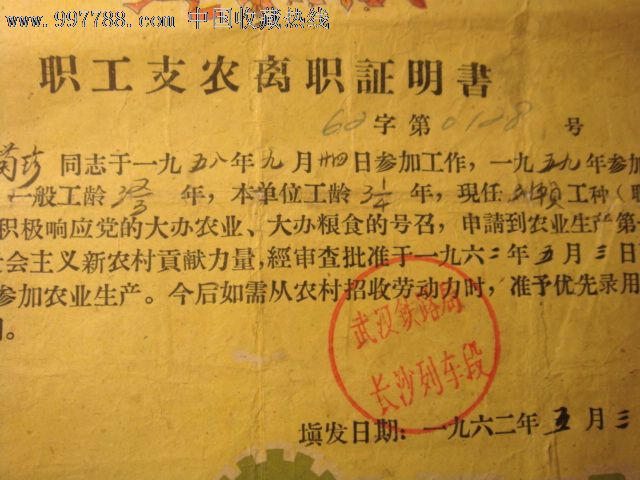 www.997788.com 中国收藏热线
职工支农离职証明書
62字第0128号
菊珍 同志于一九五八年九月廿四日参加工作，一九五九年参加
一般工龄 年，本单位工龄 年，現任 工种（职
积极响应党的大办农业、大办粮食的号召，申請到农业生产第一
社会主义新农村貢献力量，經审查批准于一九六二年五月三日
参加农业生产。今后如需从农村招收劳动力时，准予优先录用
武汉铁路局
长沙列车段
填发日期：一九六二年五月三